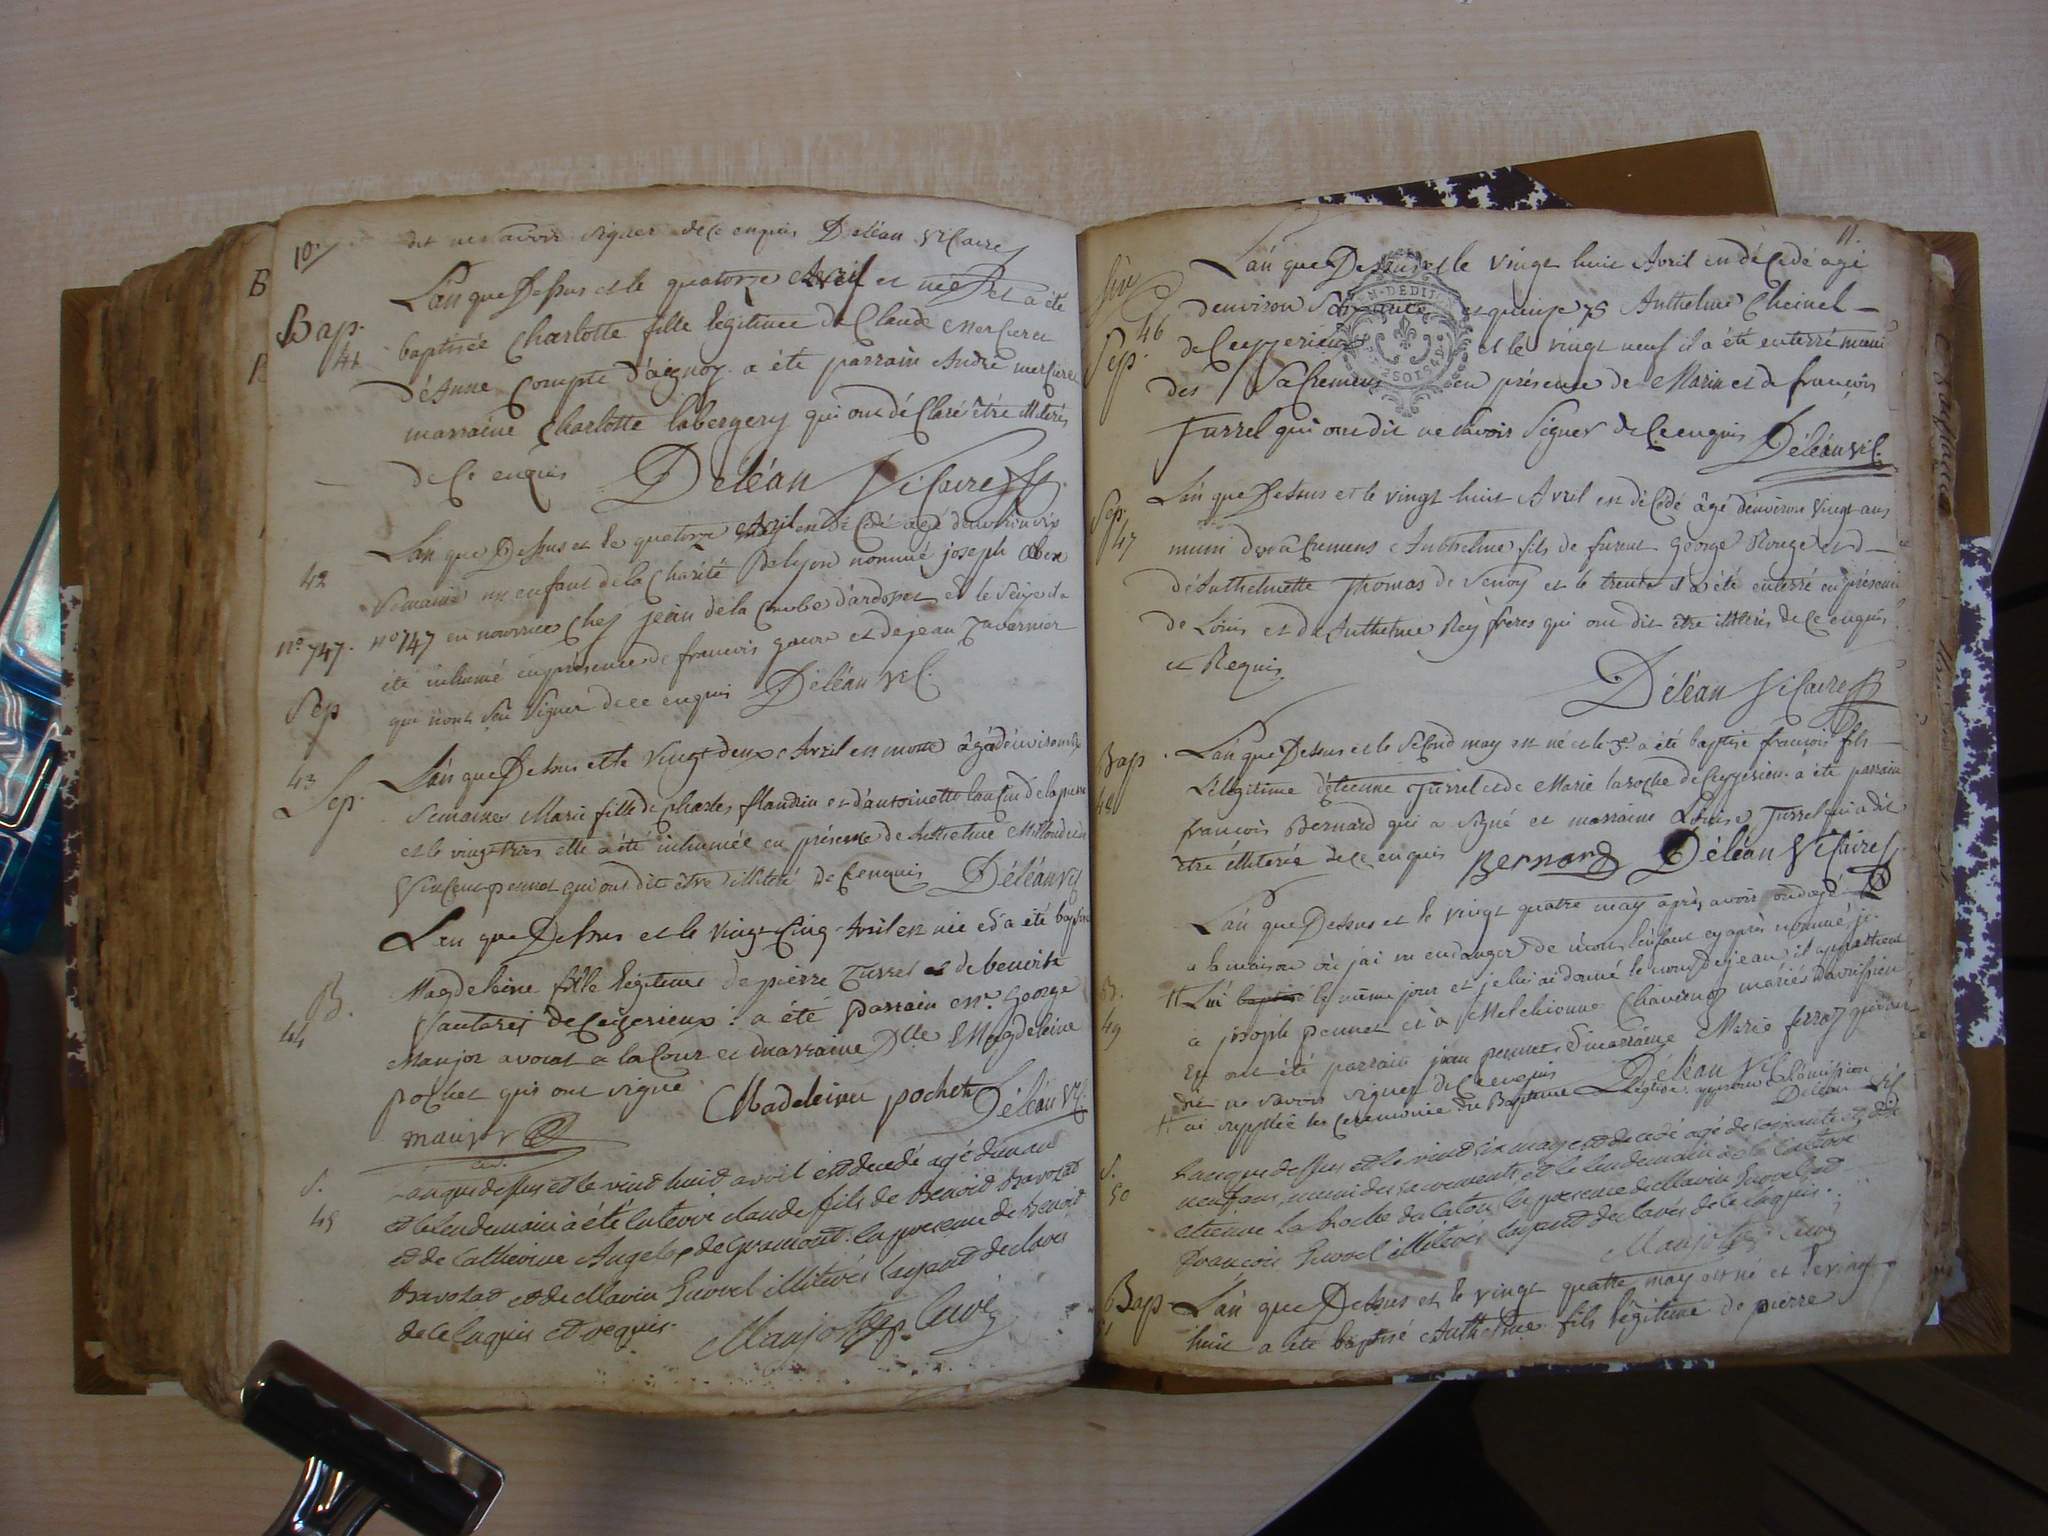 10.
dit ne savoir signer de ce enquis Deléan vicaire
L'an que Dessus et le quatorze Avril est née et a été
Bap.
41
baptisée Charlotte fille légitime de Claude Mercier et
d'Anne Compte d'aignoz a été parrain André mercier
marraine Charlotte labergery qui ont déclaré être illiterés
de Ce enquis Deléan Vicaire
L'an que Dessus et le quatorze Avril est décédé agé d'environ six
42
semaines un enfant de la Charité De lyon nommé joseph
n° 747.
n° 747 en nourrice chez jean de la Combe d'ardosset et le seize il a
été inhumé en présence de francois goure et de jean Tavernier
Sep
qui n'ont seu signer de ce enquis Déléan vic.
43
Sep.
L'an que Dessus et le Vingt deux Avril est morte âgée d'environ six
semaines Marie fille de charles flandrin et d'antoinette
et le vingt trois elle a été inhumée en présence de Anthelme
Vincent pennet qui ont dit être illiteré de Ce enquis Déléan vic
L'an que Dessus et le Vingt Cinq Avril est née et a été baptisée
B.
44
Magdeleine fille légitime de pierre Turrel et de benoite
de Ceyzerieux : a été parrain mr. George
Manjot avocat a la Cour et marraine Dlle Magdeleine
pochet qui ont signé Madeleine pochet Déléan vic.
manjot
S.
45
L'an que dessus et le vint huit avril est decedé agé d'un an
et le lendemain à été enterré claude fils de Benoit Bavozat
et de Catherine Angelop de Gramont. en presence de Benoit
Bavozat et de Marin Turrel illiterés layant declarés
de ce enquis et requis. Manjot curé
11.
L'an que Dessus et le vingt huit Avril est décedé agé
46
Sep.
d'environ soixante et quinze 75 Anthelme Cheinel
de Ceyzerieux et le vingt neuf il a été enterré muni
des Sacremens en présence de Marin et de françois
Turrel qui ont dit ne savoir signer de Ce enquis Déléan vic.
Sep.
47
L'an que Dessus et le vingt huit Avril est décédé âgé d'environ vingt ans
muni des sacremens Anthelme fils de furent George Rouge et d
d'Anthelmette Thomas de Venoy et le trente il a été enterré en présence
de Loüis et de Anthelme Rey freres qui ont dit être illiterés de Ce enquis
et Requis Déléan Vicaire
Bap
48
L'an que Dessus et le second may est né et le 3e a été baptisé francois fils
légitime d'étienne Turrel et de Marie laroche de Ceyzerieu. a été parrain
francois Bernard qui a signé et marraine Loüise Turrel qui a dit
être illiterée de ce enquis Bernard Déléan Vicaire
L'an que Dessus et le vingt quatre may après avoir ondoyé
a la maison où j'ai vu en danger de mort l'enfant cy après nommé je
B.
49
Lui baptisé le même jour et je lui ai donné le nom de jean il appartient
a joseph pennet et a Melchionne mariés
Ey ont été parrain jean pennet & marraine Marie ferraz qui ont
dit ne savoir signer de Ce enquis Déléan Vic
ai supplée les Ceremonie du Baptême a l'église Déléan Vic
S.
50
L'an que dessus et le vint six may est decedé agé de soixante et dix
neuf ans, muni des sacrements et le lendemain a été enterré
etienne La Roche en presence de Marin Turrel et
François Turrel illiterés layant declarés de ce enquis.
Manjot curé
Bap
51
L'an que Dessus et le vingt quatre may est né et le vingt
huit a été baptisé Anthelme fils légitime de pierre